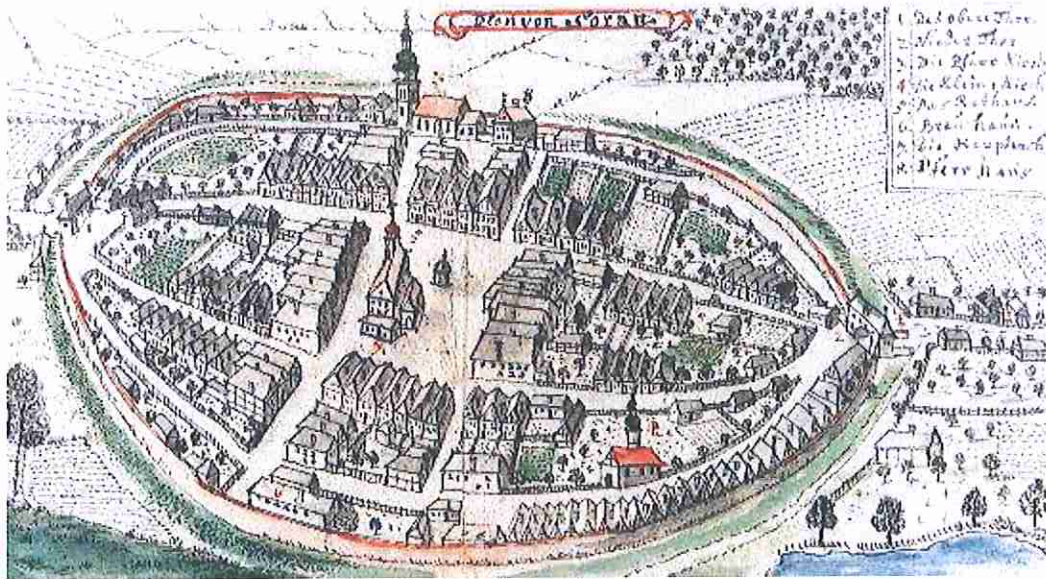 Plan von Sorau
1. Das obere Thor.
2. Nieder Thor
3. Die Pfarr Kirch
4. die Klein Kirch
5. Das Rathaus.
6. Breu Haus.
7. die Hauptwach
8. Pfarr Haus